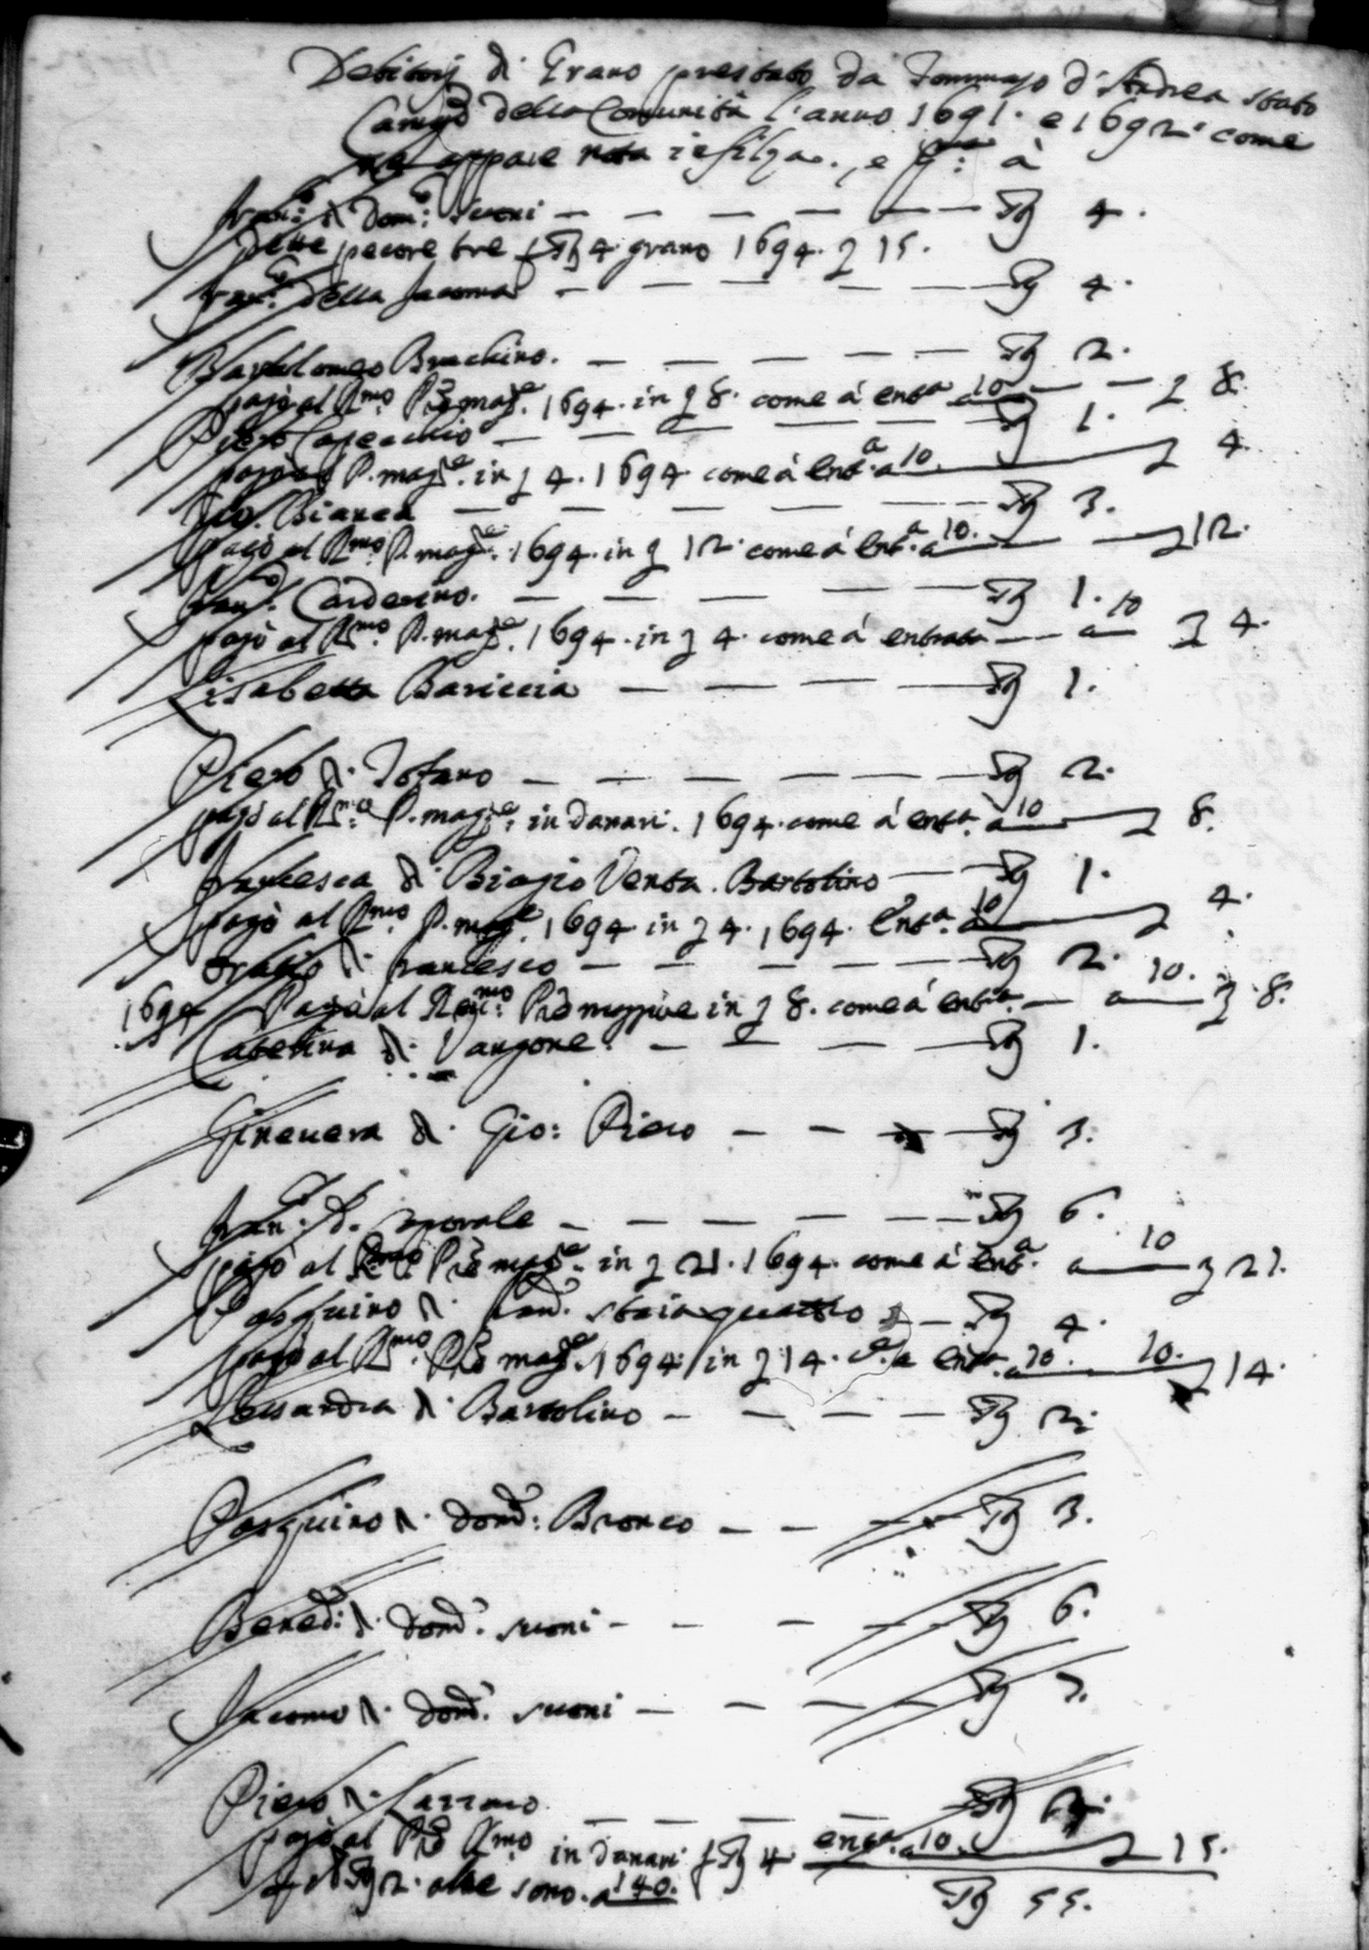 Debitori di Grano prestato da Tommaso d'Andrea stato
Camgo della Comunità l'anno 1691. e 1692. come
ne appare nota in filza., e pa: à
Franco: d. Domo: Suoni — — — — — Sg 4.
Dette pecore tre p Sg 4 grano 1694. z 15.
Franco: della Jacoma — — — — — Sg 4.
Bartolomeo Brachino. — — — — — Sg 2.
pagò al Rmo. Pre mage. 1694. in z 8. come á enta a 10 — — z 8
Piero Capecchio — — — — — Sg 1.
pagò al P. mage. in z 4. 1694 come á enta. a 10. — z 4.
Gio. Bianca — — — — — Sg 3.
pagò al Rmo P. mage. 1694. in z 12. come á enta. a 10. — z 12.
Franco. Carderino. — — — — — Sg 1.
pagò al Rmo. P. mage. 1694. in z 4. come á entrata — a 10 z 4.
Lisabetta Bariccia — — — — Sg 1.
Piero d. Tofano — — — — — Sg 2.
pagò al Rmo. P. mage. in danari. 1694. come á enta. a 10 — z 8.
Francesca di Biagio Venta. Bartolino — — Sg 1.
pagò al Rmo. P. mage. 1694 in z 4. 1694. Enta. a 10 — z 4.
Orazio d. francesco — — — — — Sg 2.
1694 Pagò al Remo: Pre maggiore in z 8. come á enta — a 10. z 8.
Caterina di Vangone. — — — — Sg 1.
Gineuera d. Gio: Piero — — — — Sg 3.
Franco. d. Caporale — — — — — Sg 6.
pagò al Rmo Pre mage. in z 21. 1694. come á enta. a 10 z 21.
Pasquino d. Franco. staia quattro — Sg 4.
pagò al Rmo. Pre mage. 1694. in z 14. ce. a enta a 10. 10. z 14.
Lessandra d. Bartolino — — — — Sg 2.
Pasquino d. Domo: Bronco — — — Sg 3.
Bened: d. Domo. suoni — — — — Sg 6.
Jacomo d. Domo. suoni — — — — Sg
Piero d. Lazzaro — — — — Sg
pagò al Pre Rmo in danari p Sg 4 enta. a 10. z 15.
Sg 2. altre sono. a 140.
Sg 55.